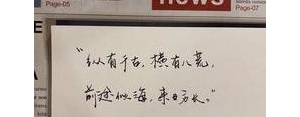 Page-05
news
Page-07
“纵有千古，横有八荒，
前途似海，来日方长。”